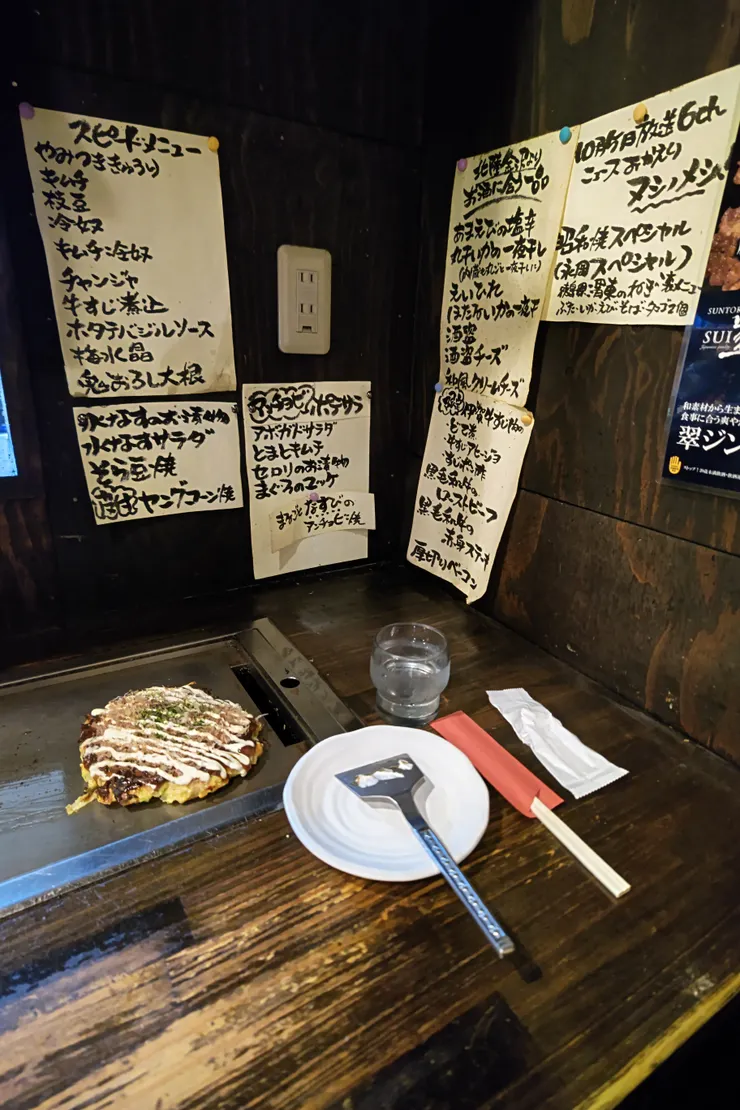 スピードメニュー
やみつききゅうり
キムチ
枝豆
冷奴
キムチ冷奴
チャンジャ
牛すじ煮込
ホタテバジルソース
梅水晶
鬼おろし大根
水なすのお漬物
水なすサラダ
そら豆焼
ヤングコーン焼
ポテサラ
アボガドサラダ
とまとキムチ
セロリのお漬物
まぐろのユッケ
なすびの
アンチョビ焼
北陸金沢より
お酒に合う一品
あまえびの塩辛
丸干いかの一夜干し
えいひれ
ほたるいかの一夜干
酒盗
酒盗チーズ
和風クリームチーズ
どて煮
牛すじアヒージョ
すじポン酢
黒毛和牛の
ローストビーフ
黒毛和牛の
赤身ステーキ
厚切りベーコン
放送6ch
ニュースおかえり
ヌシノメシ
昭和焼スペシャル
スペシャル)
ふた いか えび そば タマゴ2個
SUNTORY
SUI
和素材から生ま
食事に合う爽や
翠ジン